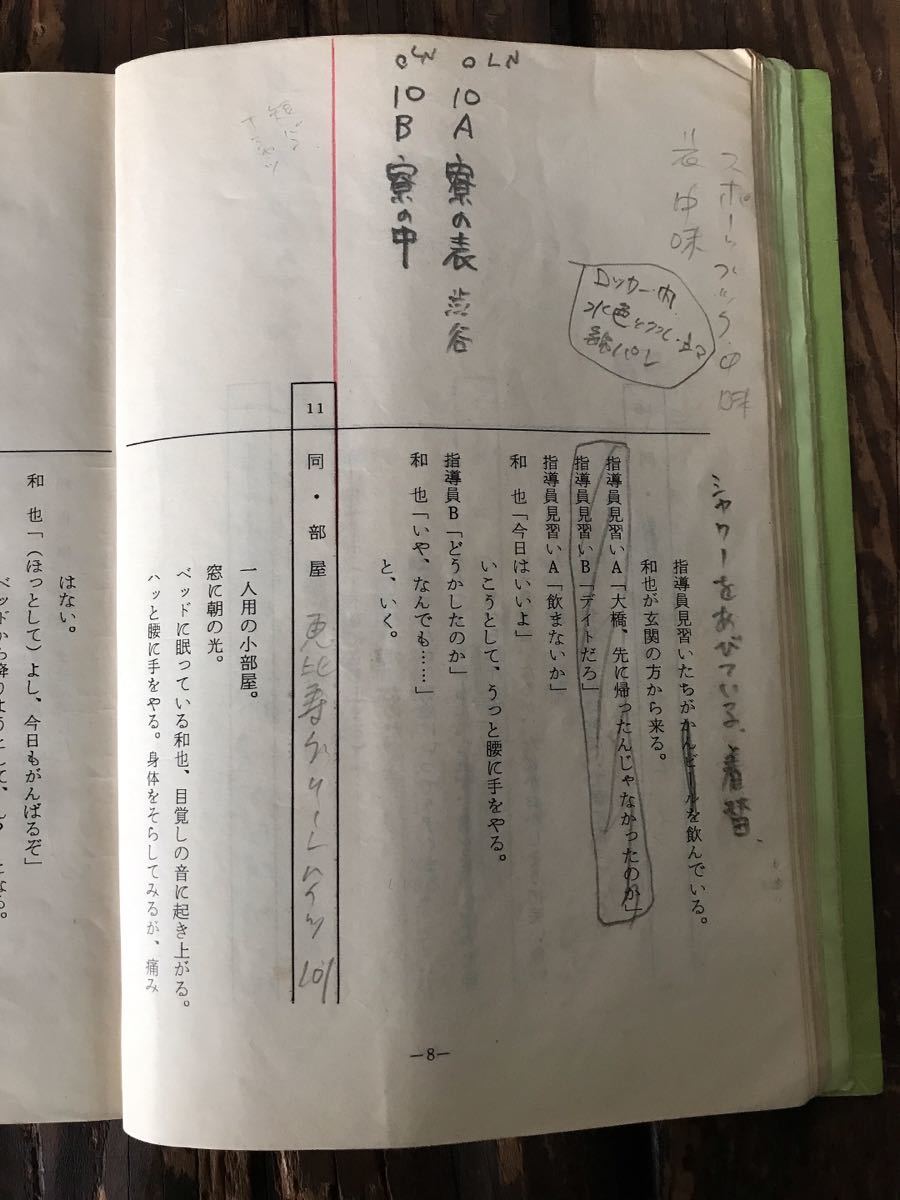 スポーツバック・中味
岩 中味
ロッカー内
水色
OLN OLN
10A 寮の表 渋谷
10B 寮の中
シャワーをあびている、着替
指導員見習いたちがかんビールを飲んでいる。
和也が玄関の方から来る。
指導員見習いA「大橋、先に帰ったんじゃなかったのか」
指導員見習いB「デイトだろ」
指導員見習いA「飲まないか」
和 也「今日はいいよ」
いこうとして、うっと腰に手をやる。
指導員B「どうかしたのか」
和 也「いや、なんでも……」
と、いく。
11 同・部屋 恵比寿グリーンハイツ 101
一人用の小部屋。
窓に朝の光。
ベッドに眠っている和也、目覚しの音に起き上がる。
ハッと腰に手をやる。身体をそらしてみるが、痛み
—8—
はない。
和 也「(ほっとして)よし、今日もがんばるぞ」
ベッドから降りようとして、